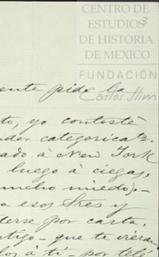 CENTRO DE
ESTUDIOS
DE HISTORIA
DE MEXICO
FUNDACIÓN
Carlos Slim
3
ente pide la
to, yo contesté
categorica
ado á New York
luego á ciegas,
mucho miedo)
a esos Sres y
derse por carta,
tigo - que te vieran
á ti - por telé